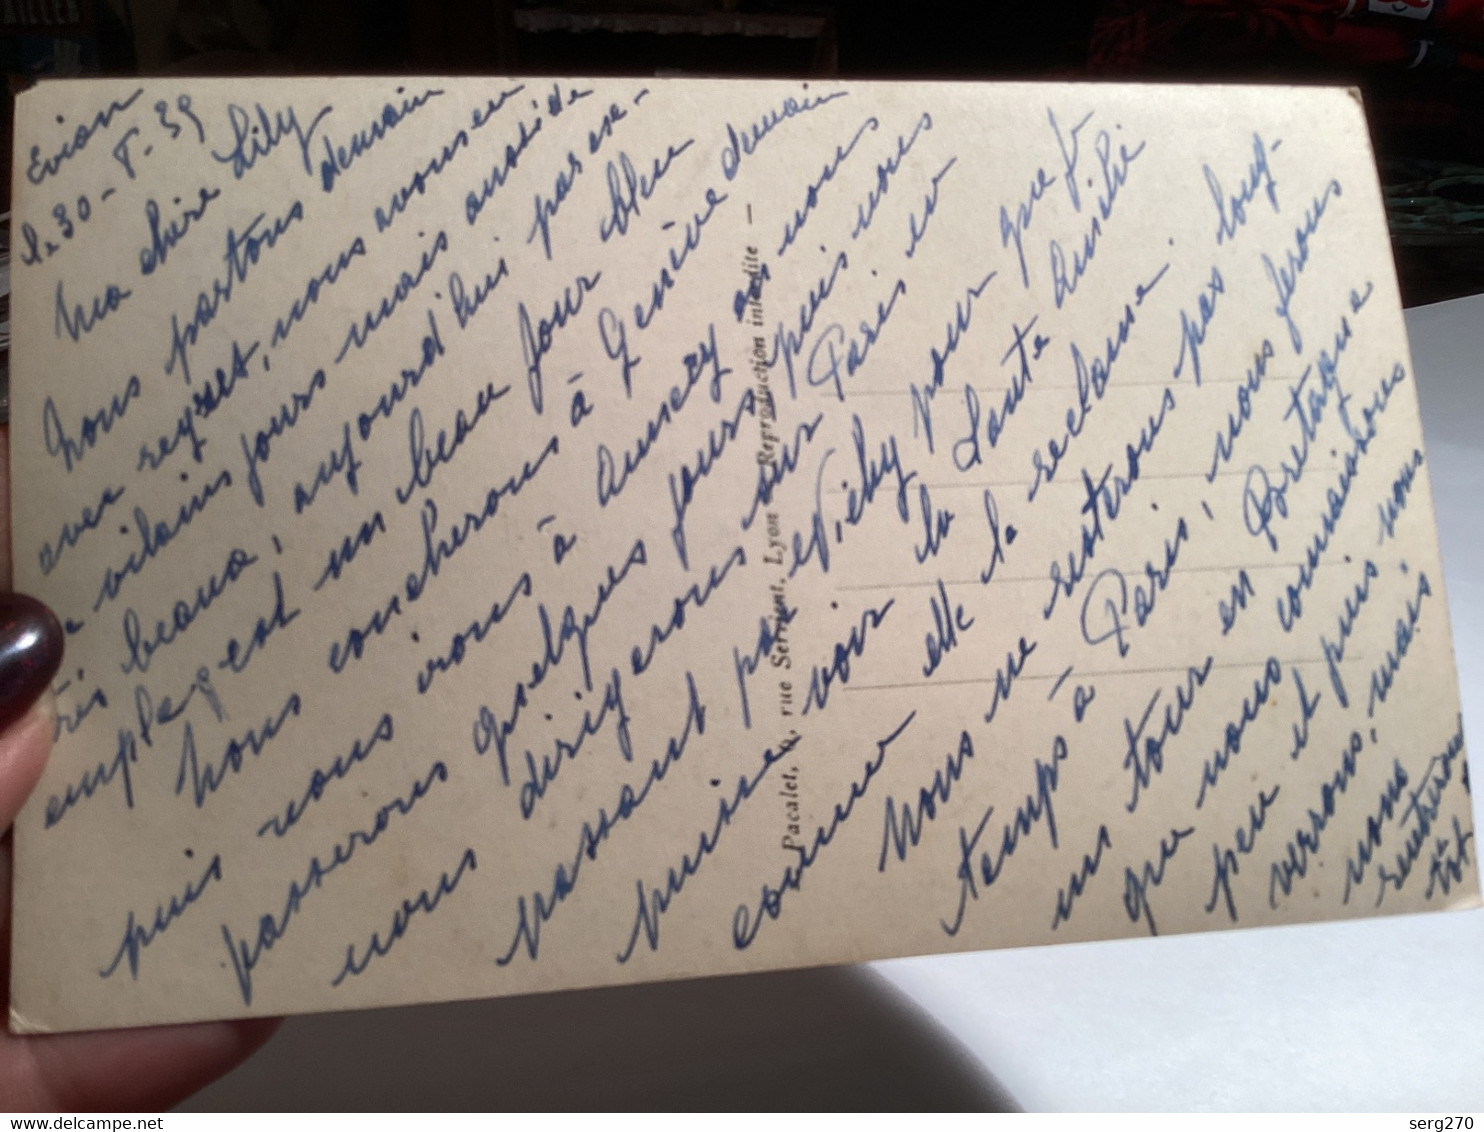 Evian
le 30-8-39
Ma chère Lily
Nous partons demain
avec regret, nous avons eu
de vilains jours mais aussi de
très beaux, aujourd'hui par ex-
emple c'est un beau jour bleu
Nous coucherons à Genève demain
puis nous irons à Annecy où nous
passerons quelques jours puis nous
nous dirigerons sur Paris en
passant par Vichy pour que je
puisse voir la tante
comme elle le réclame.
Nous ne resterons pas long-
temps à Paris, nous ferons
un tour en Bretagne
que nous connaissons
peu et puis nous
verrons, mais
nous
rentrerons
tôt
Pacalet, rue Servient, Lyon Reproduction interdite —
delcampe.net
serg270